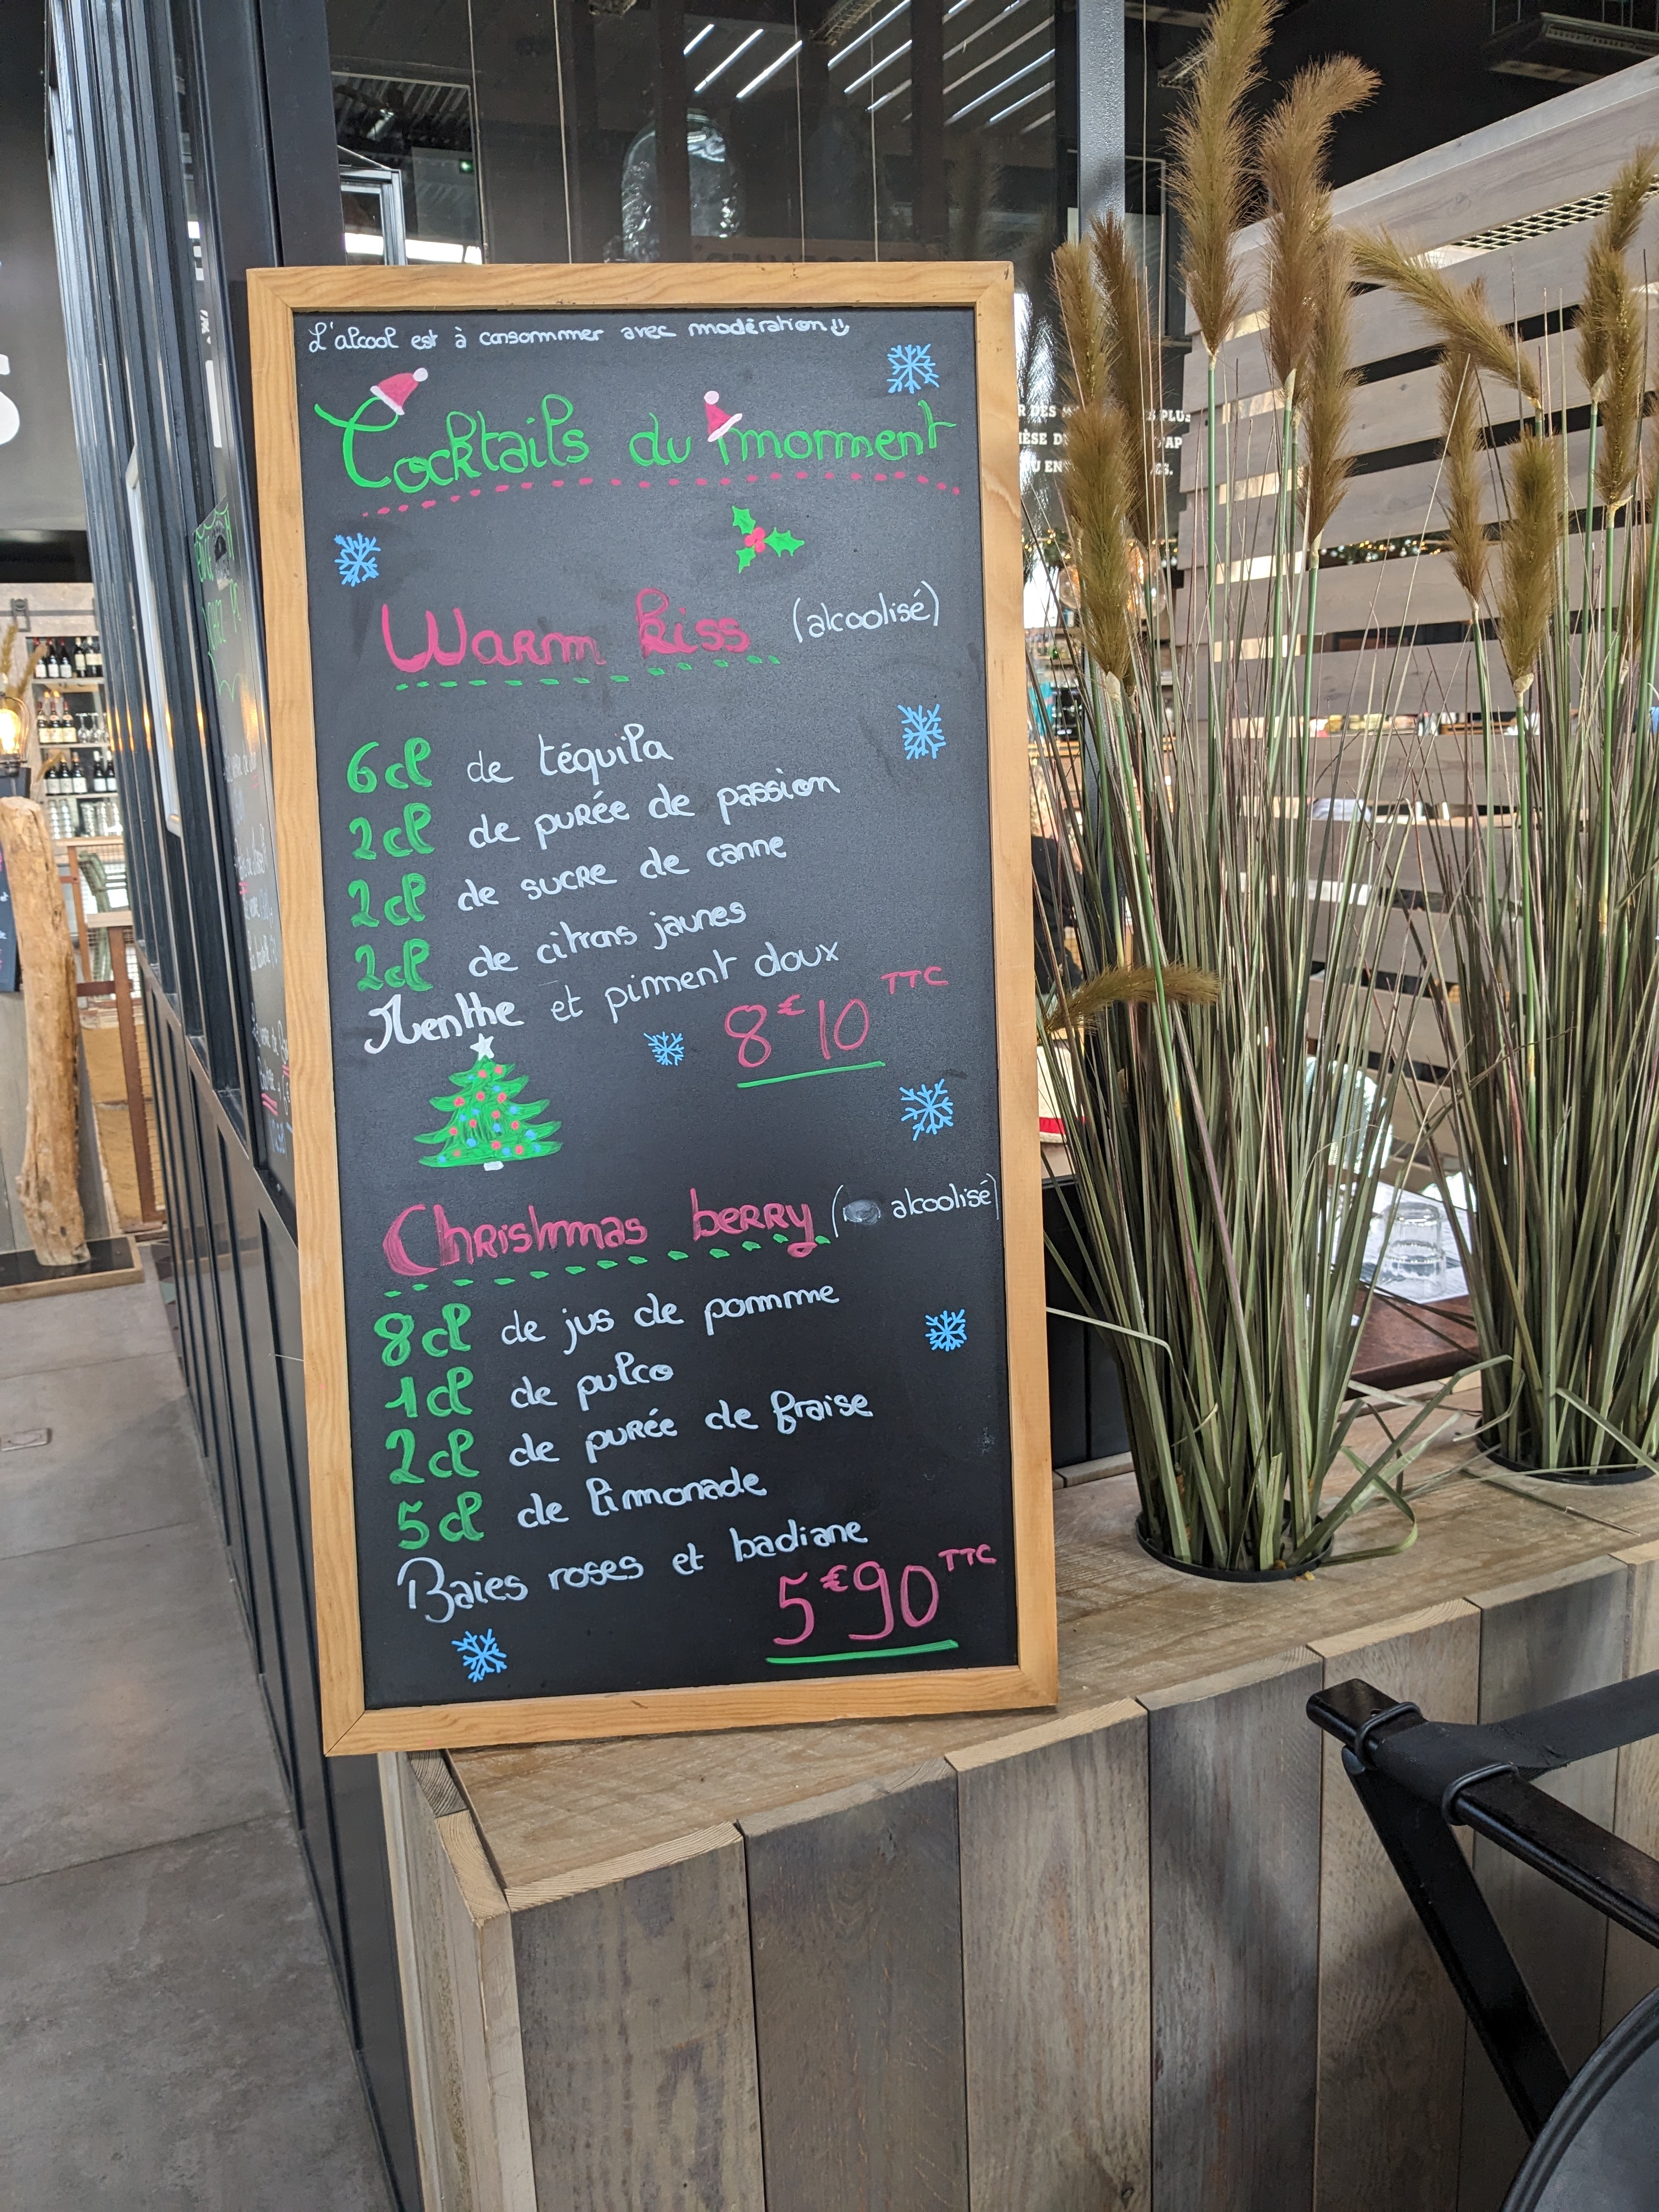 L'alcool est à consommer avec modération
Cocktails du moment
Warm kiss (alcoolisé)
6cl de téquila
2cl de purée de passion
2cl de sucre de canne
2cl de citrons jaunes
Menthe et piment doux
8€10 TTC
Christmas berry ( alcoolisé)
8cl de jus de pomme
1cl de pulco
2cl de purée de fraise
5cl de limonade
Baies roses et badiane
5€90 TTC